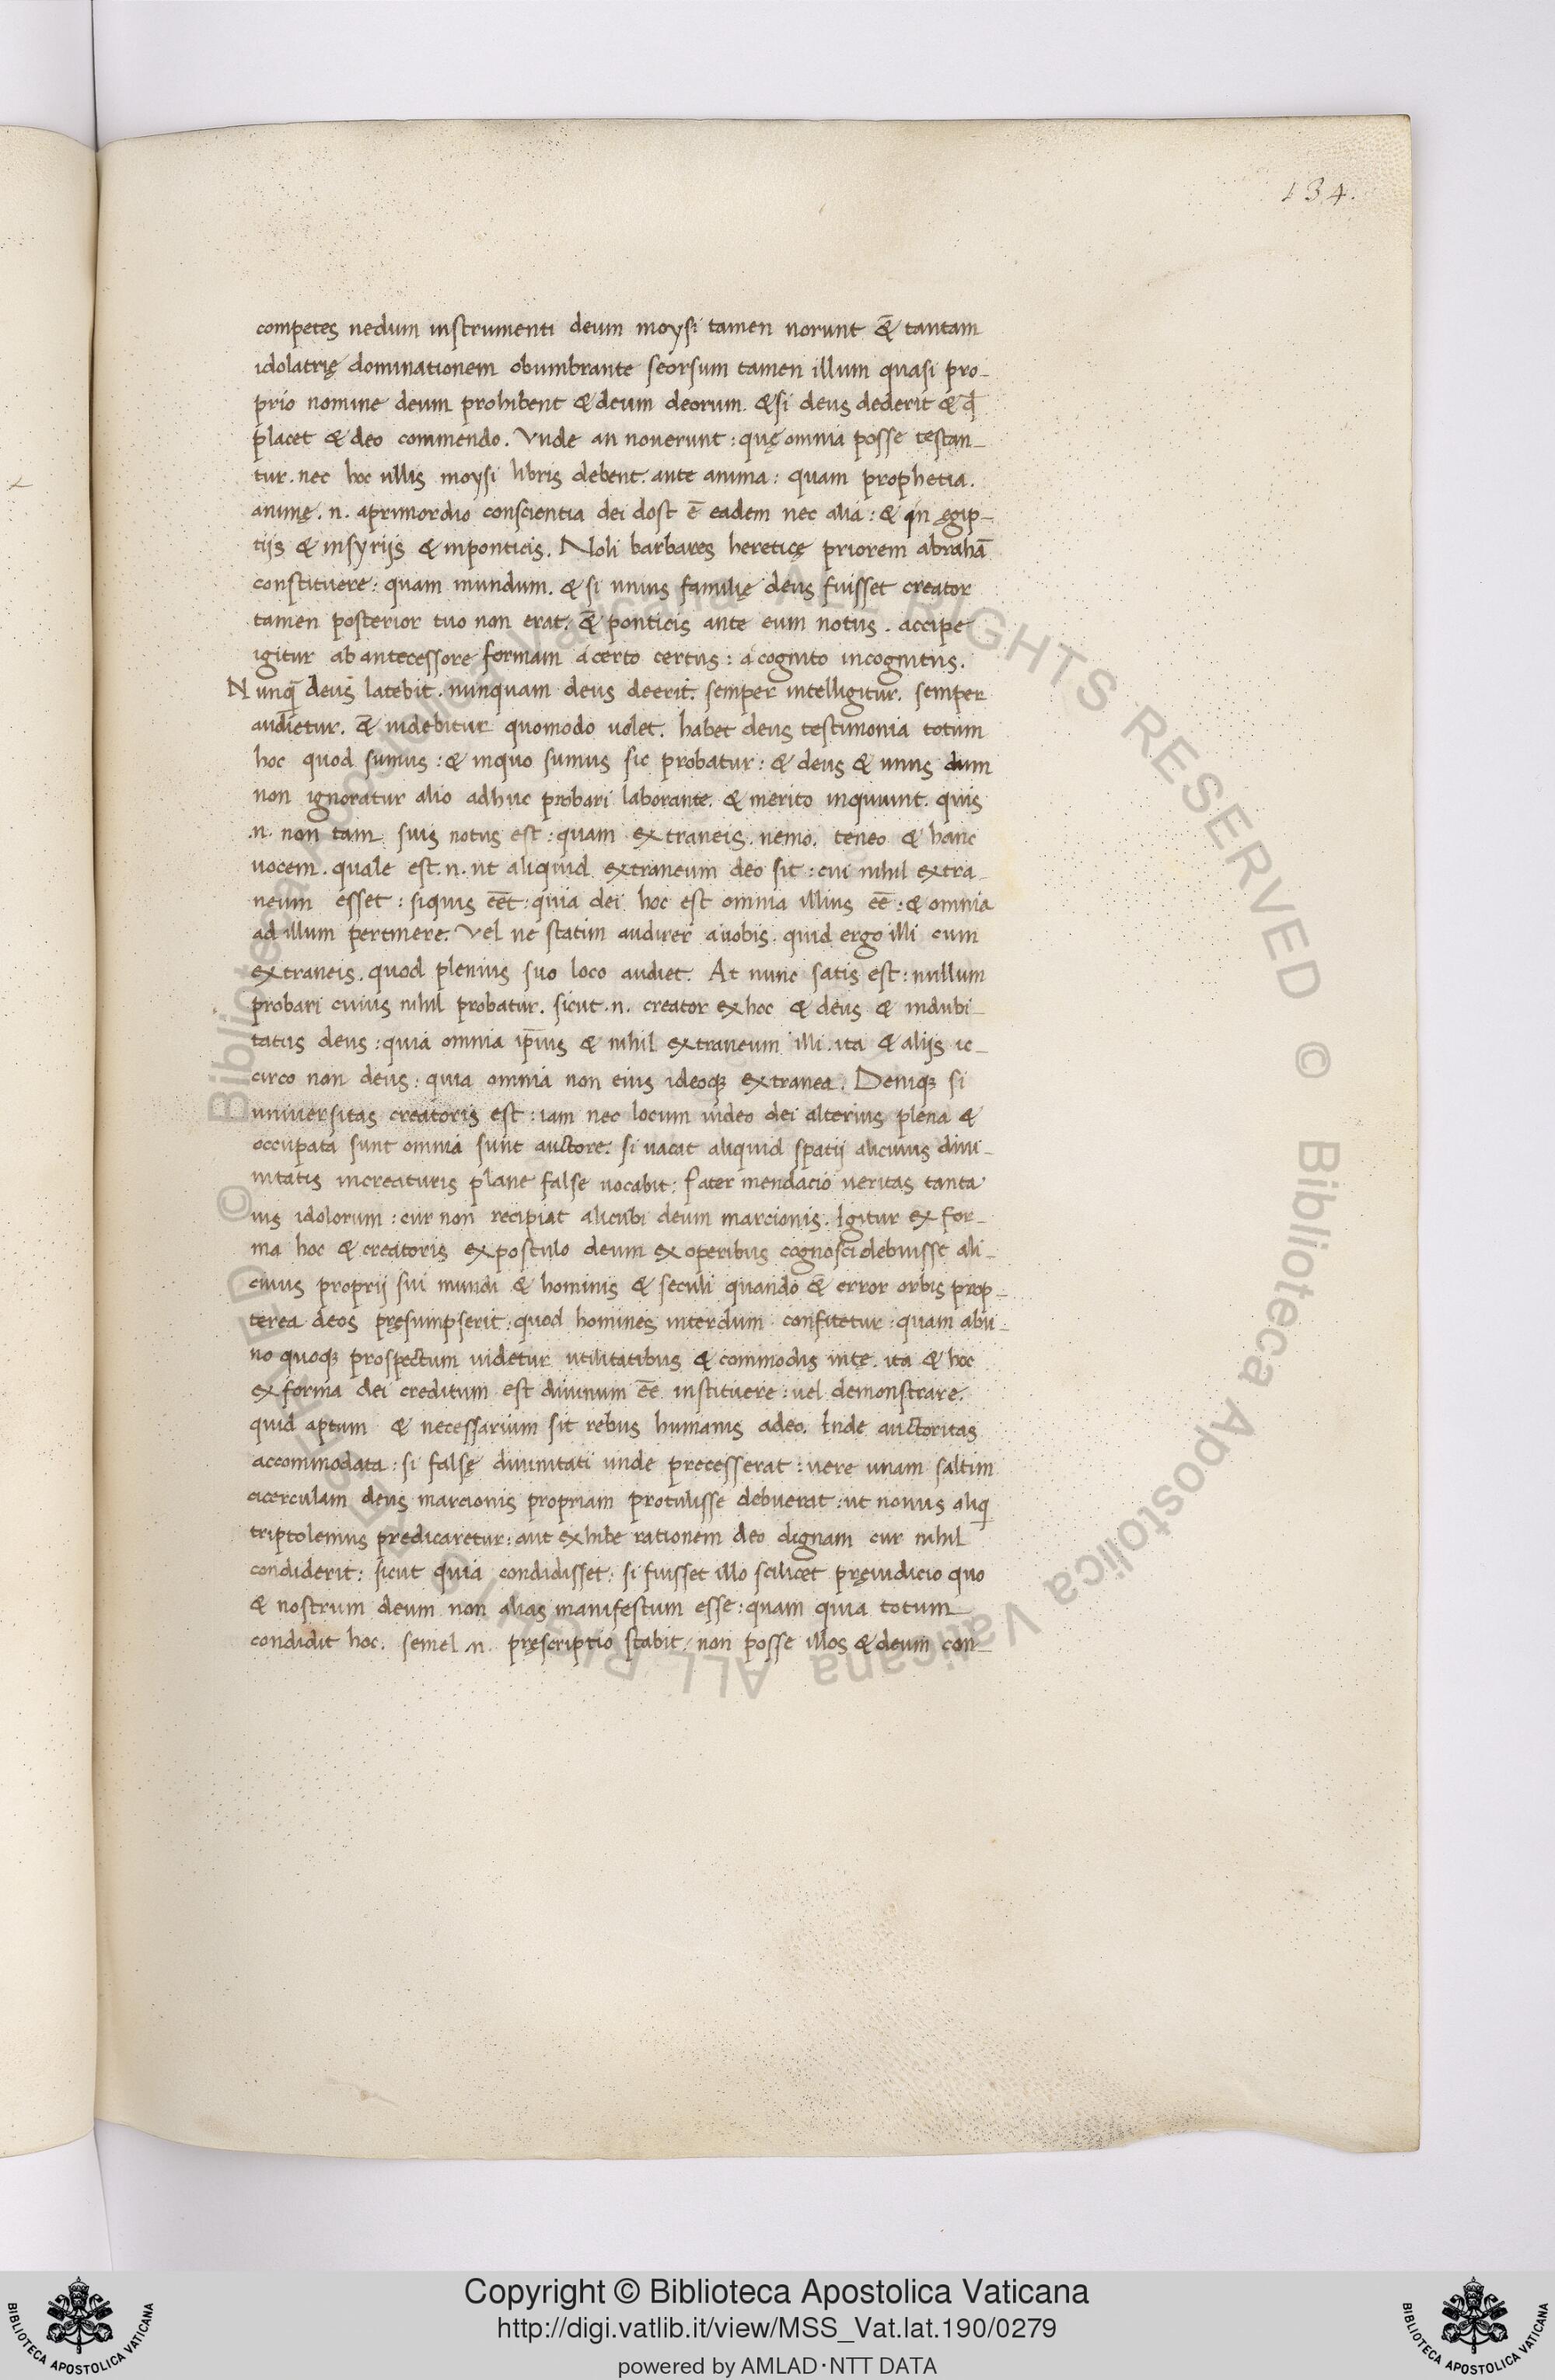 134.
competes nedum instrumenti deum moysi tamen norunt &̄ tantam
idolatrię dominationem obumbrante seorsum tamen illum quasi pro-
prio nomine deum prohibent & deum deorum. & si deus dederit & q̄
placet & deo commendo. Vnde an nouerunt: quę omnia posse testan-
tur. nec hoc ullis moysi libris debent. ante anima: quam prophetia.
animę .n. aprimordio conscientia dei dost ē eadem nec alia: & in ęgip-
tijs & insyrijs & inponticis. Noli barbares heretice priorem abrahā
constituere: quam mundum. & si unius familię deus fuisset creator
tamen posterior tuo non erat. &̄ ponticis ante eum notus. accipe
igitur ab antecessore formam acerto certus: a cognito incognitus.
Nunq̄ deus latebit. nunquam deus deerit. semper intelligitur. semper
audietur. &̄ uidebitur quomodo uolet. habet deus testimonia totum
hoc quod sumus: & inquo sumus sic probatur: & deus & unus dum
non ignoratur alio adhuc probari laborante. & merito inquiunt. quis
.n. non tam suis notus est: quam extraneis. nemo. teneo & hanc
uocem. quale est .n. ut aliquid extraneum deo sit: cui nihil extra-
neum esset: siquis eēt: quia dei hoc est omnia illius eē: & omnia
ad illum pertinere. Vel ne statim audirer auobis. quid ergo illi cum
extraneis. quod plenius suo loco audiet. At nunc satis est: nullum
probari cuius nihil probatur. sicut .n. creator exhoc & deus & indubi-
tatus deus: quia omnia ip̄ius & nihil extraneum illi. ita & alijs ic-
circo non deus: quia omnia non eius ideoqꝫ extranea. Deniqꝫ si
uniuersitas creatoris est: iam nec locum uideo dei alterius plena &
occupata sunt omnia sunt auctore. si uacat aliquid spatij alicuius diui-
nitatis increaturis plane false uocabit: fater mendacio ueritas tanta
uis idolorum: cur non recipiat alicubi deum marcionis. Igitur ex for-
ma hoc & creatoris expostulo deum ex operibus cognosci debuisse ali-
cuius proprij sui mundi & hominis & seculi quando &̄ error orbis prop-
terea deos pręsumpserit: quod homines interdum confitetur: quam abu-
no quoqꝫ prospectum uidetur utilitatibus & commodis inte. ita & hoc
ex forma dei creditum est diuinum eē instituere: uel demonstrare.
quid aptum & necessarium sit rebus humanis adeo. Inde auctoritas
accommodata: si falsę diuinitati unde precesserat: uere unam saltim
cicerculam deus marcionis propriam protulisse debuerat: ut nouus aliq̄
triptolemus predicaretur: aut exhibe rationem deo dignam cur nihil
condiderit: sicut quia condidisset: si fuisset illo scilicet pręiudicio quo
& nostrum deum non alias manifestum esse: quam quia totum
condidit hoc. semel .n. pręscriptio stabit. non posse illos & deum con-
© Biblioteca Apostolica Vaticana ALL RIGHTS RESERVED
Copyright © Biblioteca Apostolica Vaticana
http://digi.vatlib.it/view/MSS_Vat.lat.190/0279
powered by AMLAD·NTT DATA
BIBLIOTECA APOSTOLICA VATICANA
BIBLIOTECA APOSTOLICA VATICANA